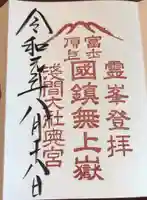 靈峯登拝
富士
頂上
國鎮無上嶽
淺間大社奥宮
令和元年八月十八日